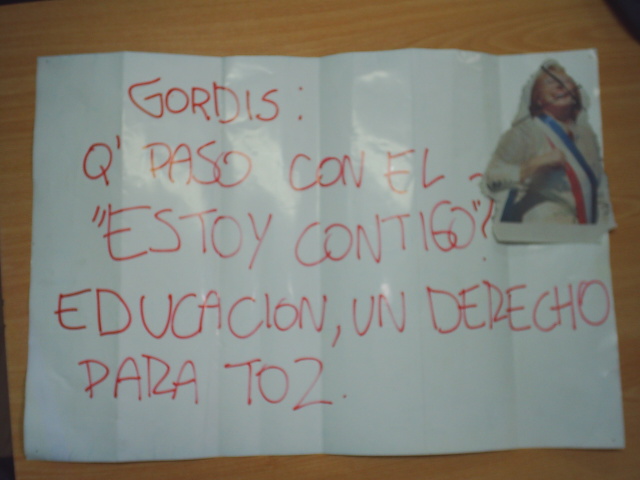 GORDIS:
Q' PASO CON EL
"ESTOY CONTIGO"?
EDUCACION, UN DERECHO
PARA TOZ.